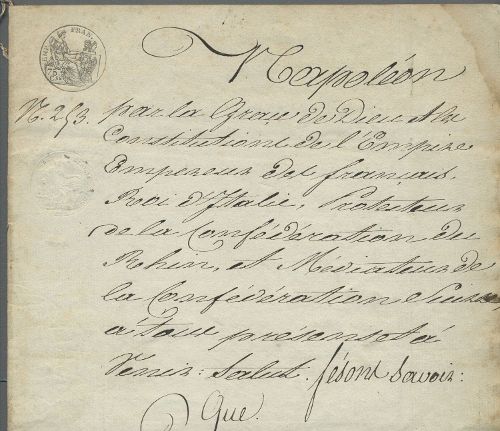 Napoléon
N. 253. par la Grace de Dieu et les
Constitutions de l'Empire
Empereur des français,
Roi d'Italie, Protecteur
de la Confédération du
Rhin, et Médiateur de
la Confédération Suisse,
à tous présens et à
Venir: Salut. fésons Savoir:
Que.